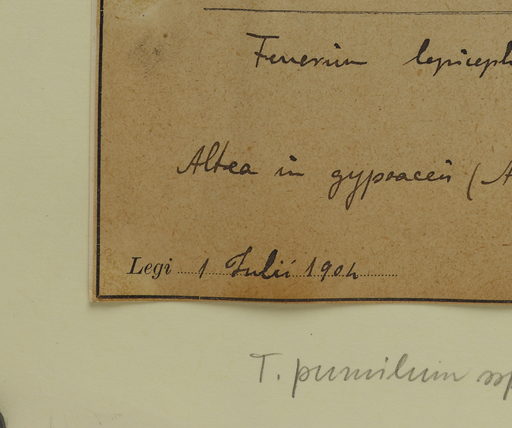 Teucrium lepiceph
Altea in gypsaceis (A
Legi 1 Julii 1904
T. pumilum sp